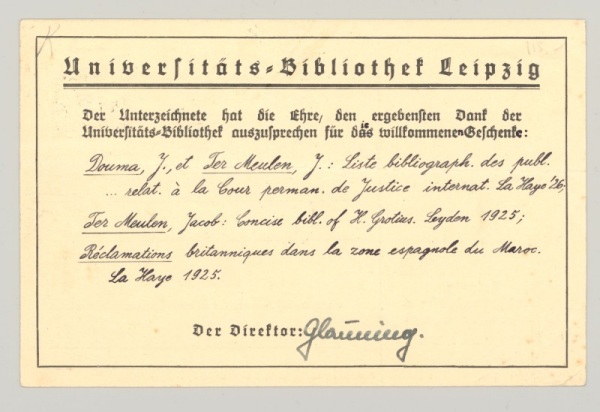 Universitäts-Bibliothek Leipzig
Der Unterzeichnete hat die Ehre, den ergebensten Dank der
Universitäts-Bibliothek auszusprechen für die willkommenen Geschenke:
Douma, J., et Ter Meulen, J.: Liste bibliograph. des publ.
... relat. à la Cour perman. de Justice internat. La Haye '26;
Ter Meulen, Jacob: Concise bibl. of H. Grotius. Leyden 1925;
Réclamations britanniques dans la zone espagnole du Maroc.
La Haye 1925.
Der Direktor: Glauning.